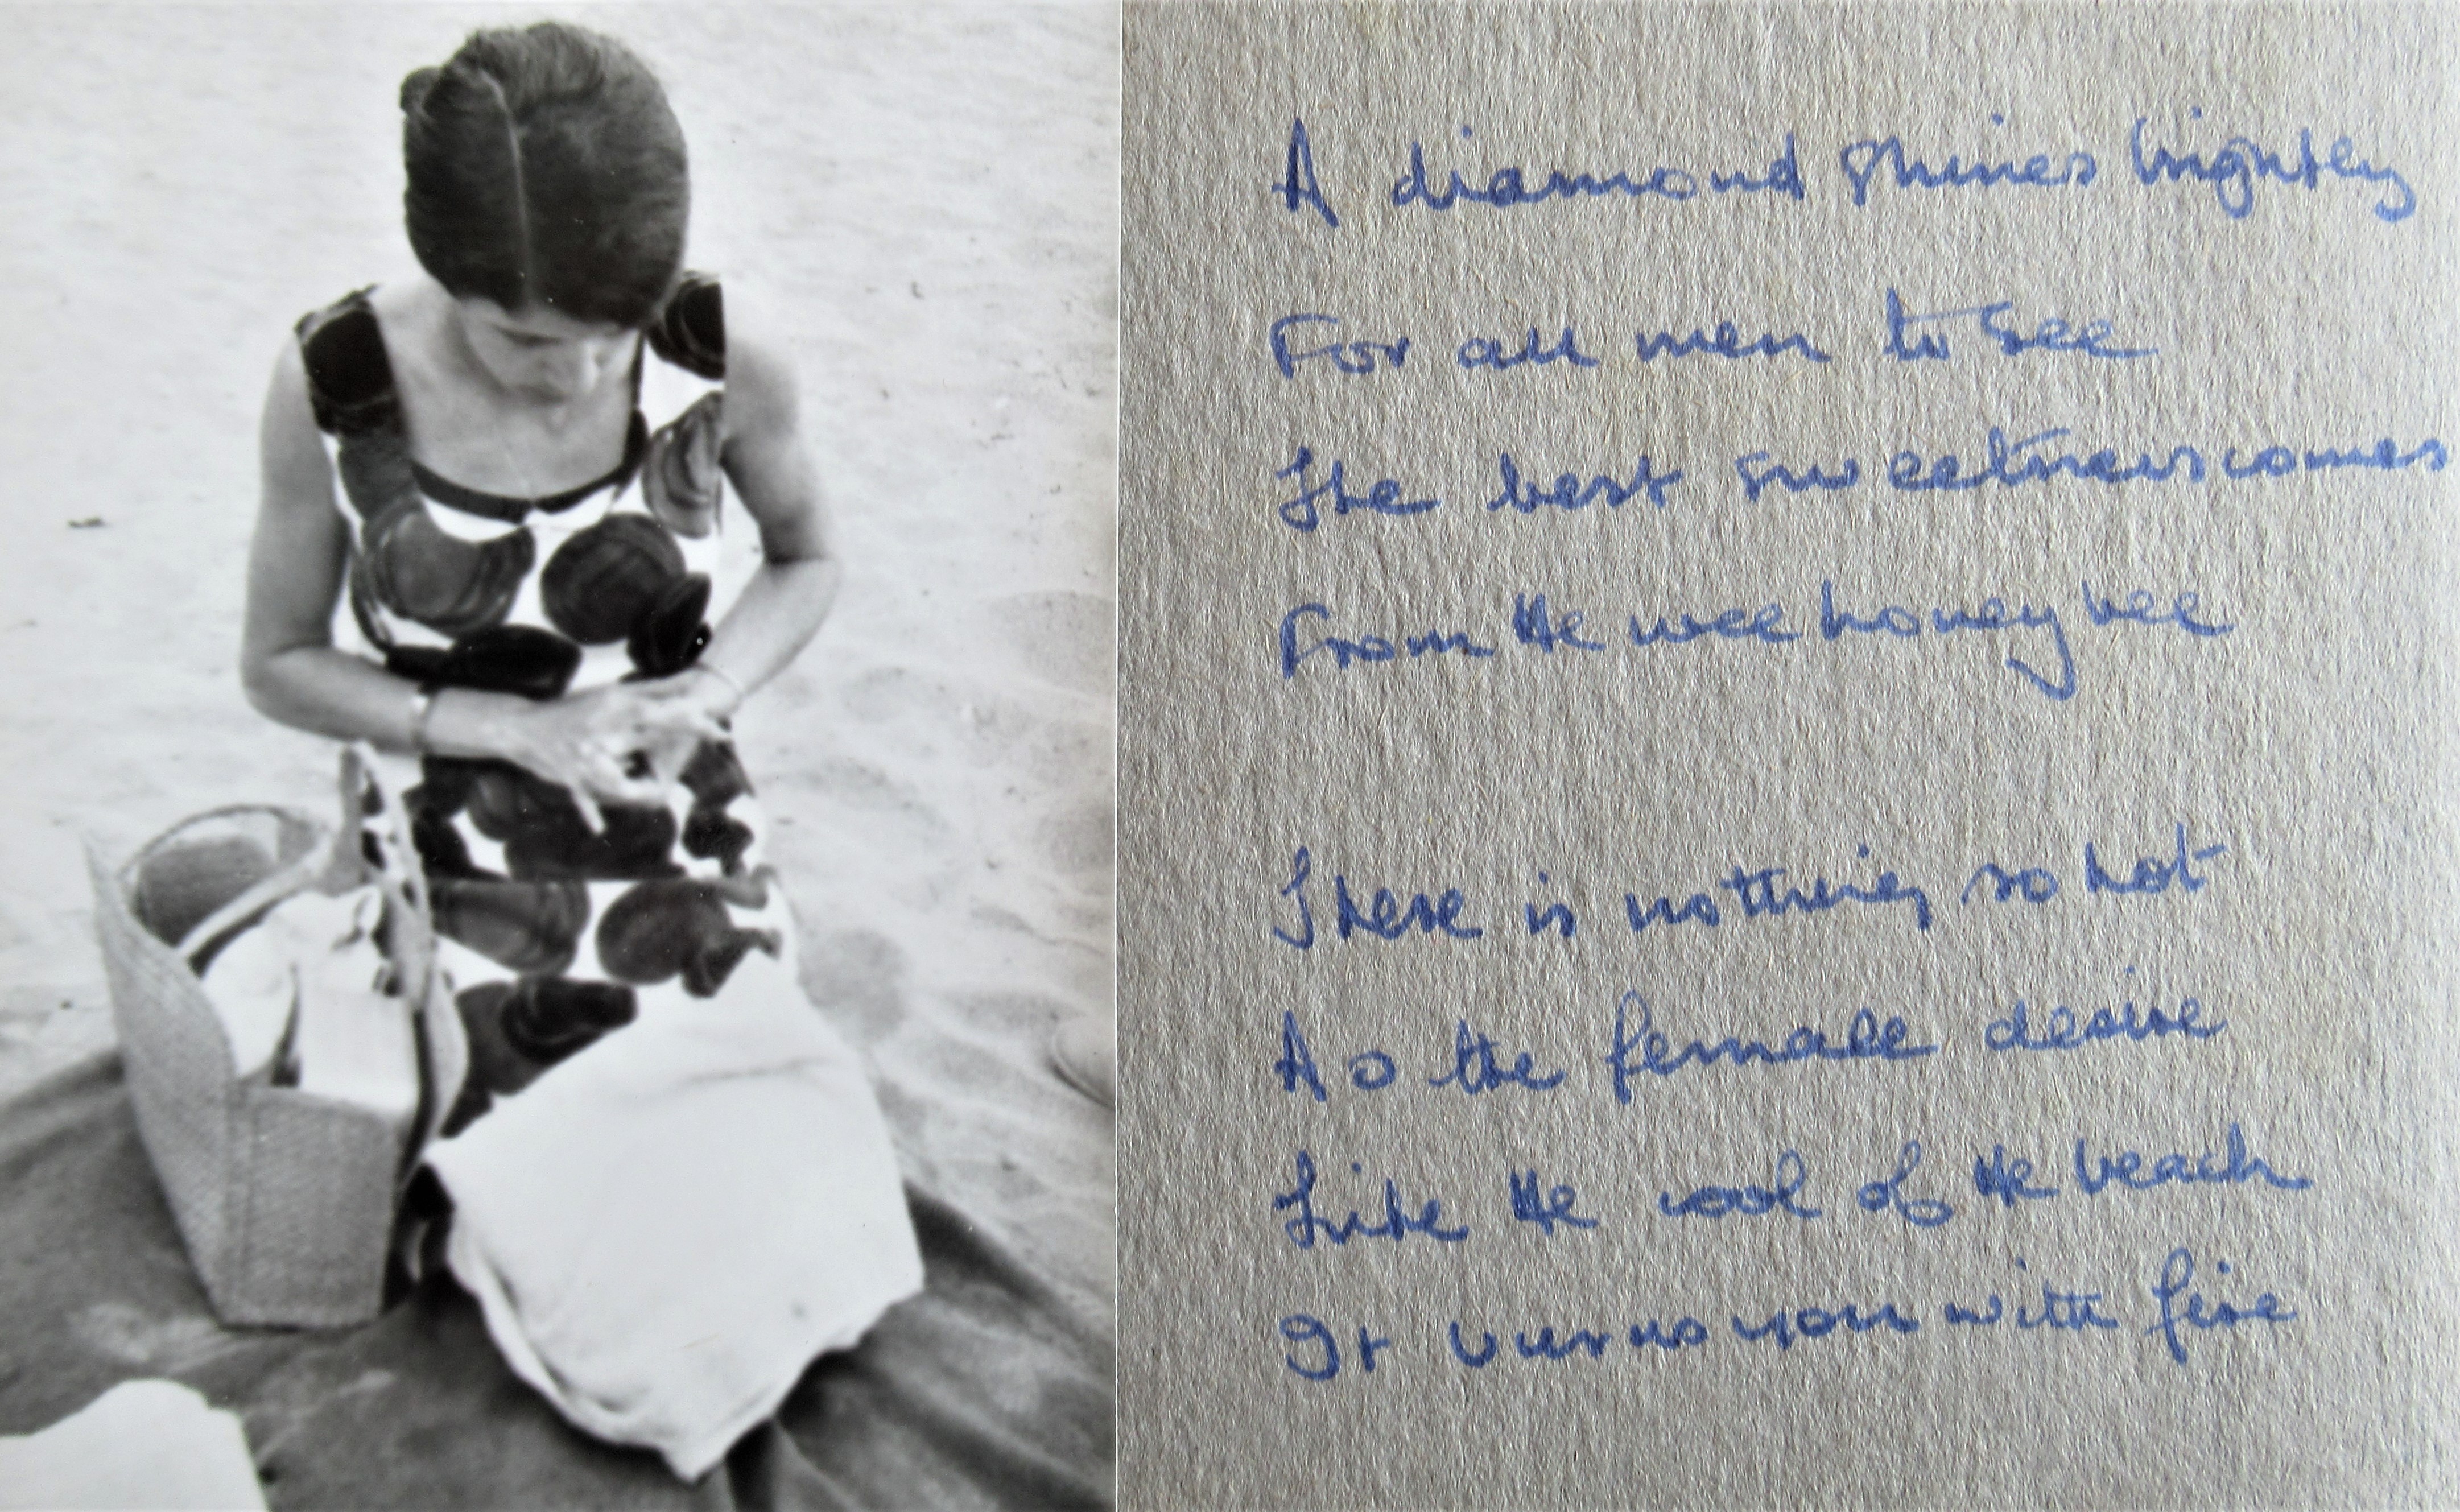 A diamond shines brightly
For all men to see
The best sweetness comes
From the wee honey bee
There is nothing so hot
As the female desire
Like the cool of the beach
It burns you with fire